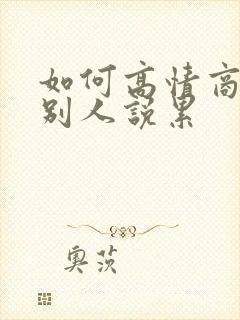 如何高情商
别人说累
奥茨